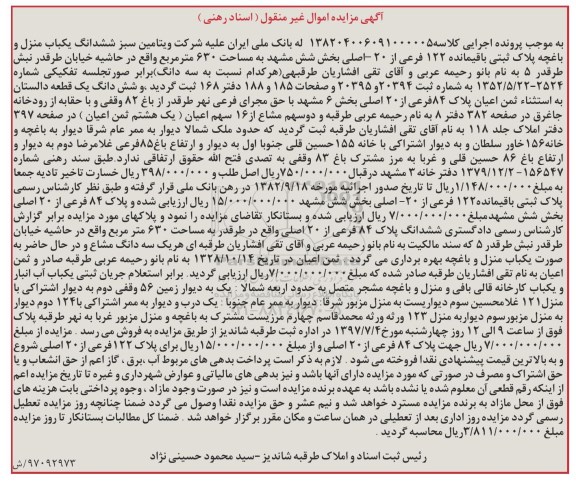 آگهی مزایده اموال غیر منقول ( اسناد رهنی )
به موجب پرونده اجرایی کلاسه۱۳۸۲۰۴۰۰۶۰۹۱۰۰۰۰۰۵ له بانک ملی ایران علیه شرکت ویتامین سبز ششدانگ یکباب منزل و
باغچه پلاک ثبتی باقیمانده ۱۲۲ فرعی از ۲۰ –اصلی بخش شش مشهد به مساحت ۶۳۰ مترمربع واقع در حاشیه خیابان طرقدر نبش
طرقدر ۵ به نام بانو رحیمه عربی و آقای تقی افشاریان طرقبهی(هرکدام نسبت به سه دانگ)برابر صورتجلسه تفکیکی شماره
۲۵۲۴-۱۳۵۲/۵/۲۲ به شماره ثبت ۲۰۳۹۴و ۲۰۳۹۵ و صفحات ۱۸۵ و ۱۸۸ دفتر ۱۶۸ ثبت گردید ،وشش دانگ یک قطعه دالستان
به استثناء ثمن اعیان پلاک ۸۴فرعی از۲۰ اصلی بخش ۶ مشهد با حق مجرای فرعی نهر طرقدر از باغ ۸۲ وقفی و با حقابه از رودخانه
جاغرق در صفحه ۳۸۲ دفتر ۸ به نام رحیمه عربی طرقبه و دوسهم مشاع از۱۶ سهم اعیان ( یک هشتم ثمن اعیان ) در صفحه ۳۹۷
دفتر املاک جلد ۱۱۸ به نام آقای تقی افشاریان طرقبه ثبت گردید که حدود ملک شمالا دیوار به ممر عام شرقا دیوار به باغچه و
خانه۱۵۶خاور سلطان و به دیوار اشتراکی با خانه ۱۵۵حسین قلی جنوبا اول به دیوار و ارتفاع باغ۸۵فرعی غلامرضا دوم به دیوار و
ارتفاع باغ ۸۶ حسین قلی و غربا به مرز مشترک باغ ۸۳ وقفی به تصدی فتح الله حقوق ارتفاقی ندارد.طبق سند رهنی شماره
۱۵۶۵۴۷-۱۳۷۹/۱۲/۲ دفتر خانه ۳ مشهد درقبال ۷۵۰/۰۰۰/۰۰۰ریال اصل طلب و ۳۹۸/۰۰۰/۰۰۰ ریال خسارت تاخیر تادیه جمعا
به مبلغ۱/۱۴۸/۰۰۰/۰۰۰ریال تا تاریخ صدور اجرائیه مورخه ۱۳۸۲/۹/۱۸ در رهن بانک ملی قرار گرفته و طبق نظر کارشناس رسمی
پلاک ثبتی باقیمانده۱۲۲ فرعی از ۲۰- اصلی بخش شش مشهد ۱۵/۰۰۰/۰۰۰/۰۰۰ ریال ارزیابی شده و پلاک ۸۴ فرعی از ۲۰ اصلی
بخش شش مشهدمبلغ۷/۰۰۰/۰۰۰/۰۰۰ ریال ارزیابی شده و بستانکار تقاضای مزایده را نمود و پلاکهای مورد مزایده برابر گزارش
کارشناس رسمی دادگستری ششدانگ پلاک ۸۴ فرعی از ۲۰ اصلی واقع در طرقدر به مساحت ۶۳۰ متر مربع واقع در حاشیه خیابان
طرقدر نبش طرقدر ۵ که سند مالکیت به نام بانو رحیمه عربی و آقای تقی افشاریان طرقبه ای هریک سه دانگ مشاع و در حال حاضر به
صورت یکباب منزل و باغچه بهره برداری می گردد . ثمن اعیان در تاریخ ۱۳۲۸/۱۰/۱۴ به نام بانو رحیمه عربی طرقبه صادر و ثمن
اعیان به نام تقی افشاریان طرقبه صادر شده که مبلغ۷/۰۰۰/۰۰۰/۰۰۰ریال ارزیابی گردید. برابر استعلام جریان ثبتی یکباب آب انبار
و یکباب کارخانه قالی بافی و منزل و باغچه مشجر متصل به حدود اربعه شمالا : یک به دیوار زمین ۵۶ وقفی دوم به دیوار اشتراکی با
منزل۱۲۱ غلامحسین سوم دیواریست به منزل مزبور شرقا : دیوار به ممر عام جنوبا : یک درب و دیوار به ممر اشتراکی با۱۲۴ دوم دیوار
به منزل مزبورسوم دیواربه منزل ۱۲۳ ورثه ورثه محمدقاسم چهارم مرزیست مشترک به باغچه و منزل مزبور غربا به نهر طرقبه پلاک
فوق از ساعت ۹ الی ۱۲ روز چهارشنبه مورخ۱۳۹۷/۷/۴ در اداره ثبت طرقبه شاندیز از طریق مزایده به فروش می رسد . مزایده از مبلغ
۷/۰۰۰/۰۰۰/۰۰۰ ریال جهت پلاک ۸۴ فرعی از۲۰ اصلی و از مبلغ ۱۵/۰۰۰/۰۰۰/۰۰۰ریال برای پلاک ۱۲۲فرعی از۲۰ اصلی شروع
و به بالاترین قیمت پیشنهادی نقدا فروخته می شود . لازم به ذکر است پرداخت بدهی های مربوط آب ،برق ، گاز اعم از حق انشعاب و یا
حق اشتراک و مصرف در صورتی که مورد مزایده دارای آنها باشد و نیز بدهی های مالیاتی و عوارض شهرداری و غیره تا تاریخ مزایده اعم
از اینکه رقم قطعی آن معلوم شده یا نشده باشد به عهده برنده مزایده است و نیز در صورت وجود مازاد ، وجوه پرداختی بابت هزینه های
فوق از محل مازاد به برنده مزایده مسترد خواهد شد و نیم عشر و حق مزایده نقدا وصول می گردد ضمنا چنانچه روز مزایده تعطیل
رسمی گردد مزایده روز اداری بعد از تعطیلی در همان ساعت و مکان مقرر برگزار خواهد شد . ضمنا کل مطالبات بستانکار تا روز مزایده
مبلغ ۳/۸۱۱/۰۰۰/۰۰۰ریال محاسبه گردید .
رئیس ثبت اسناد و املاک طرقبه شاندیز –سید محمود حسینی نژاد
۹۷۰۹۲۹۷۳/ش